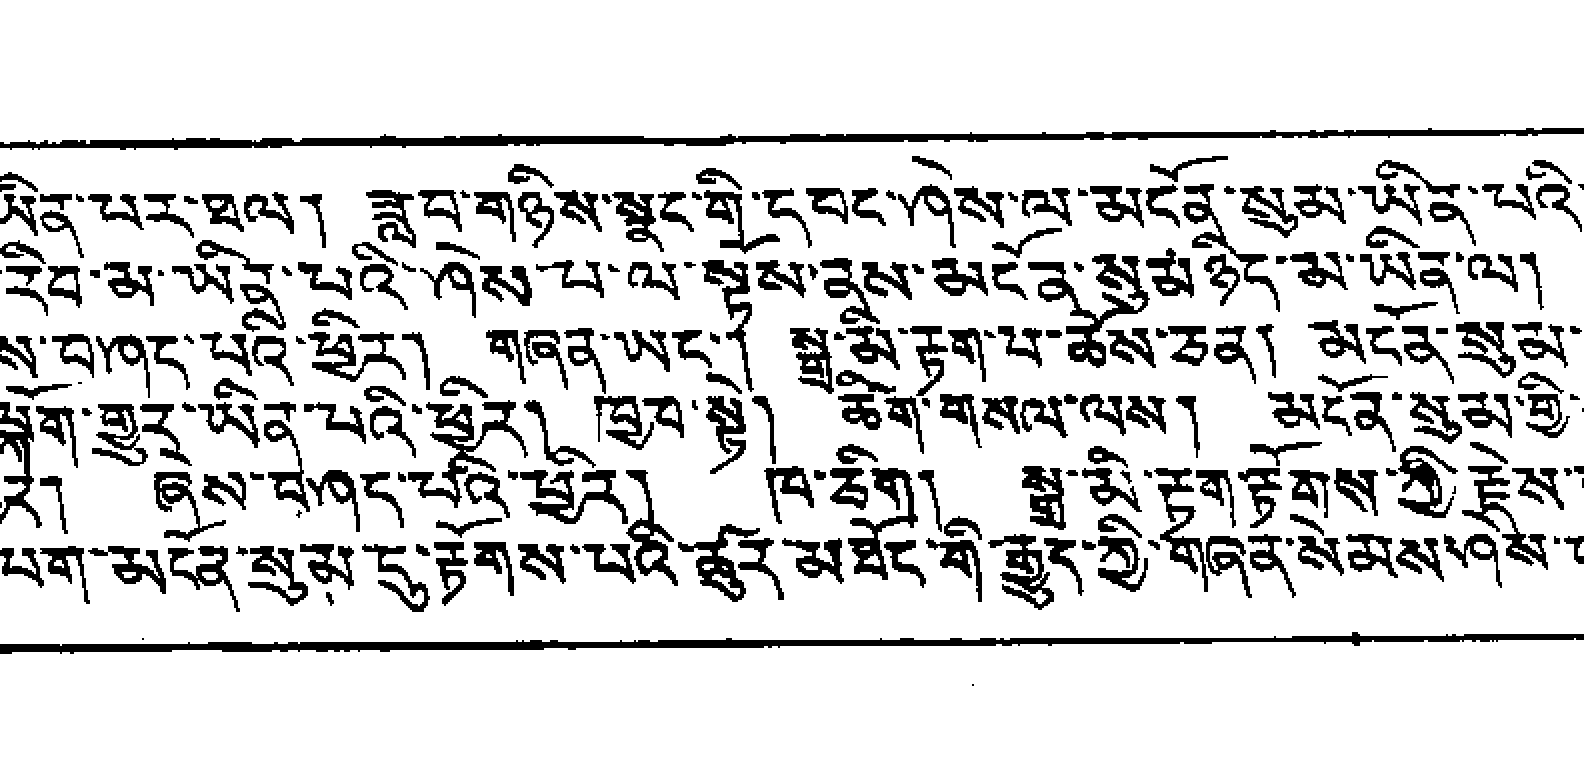 ཡིན་པར་ཐལ། ཟླབ་གཉིས་སྣང་གི་དབང་ཤེས་ལ་མངོན་སུམ་ཡིན་པའི་
རིབ་མ་ཡིན་པའི་ཤེས་པ་ལ་ལྟོས་ནས་མངོན་སུམ་ཉིད་མ་ཡིན་ལ།
ས་བཤད་པའི་ཕྱིར། གཞན་ཡང་། སྒྲ་མི་རྟག་པ་ཆོས་ཅན། མངོན་སུམ་
ལྐོག་གྱུར་ཡིན་པའི་ཕྱིར། ཁྱབ་སྟེ། ཚིག་གསལ་ལས། མངོན་སུམ་གྱི་
ར། ཞེས་བཤད་པའི་ཕྱིར། ཁ་ཅིག །སྒྲ་མི་རྟག་རྟོགས་ཀྱི་རྗེས་
པག་མངོན་སུམ་དུ་རྟོགས་པའི་ཚུར་མཐོང་གི་རྒྱུད་ཀྱི་གཞན་སེམས་ཤེས་